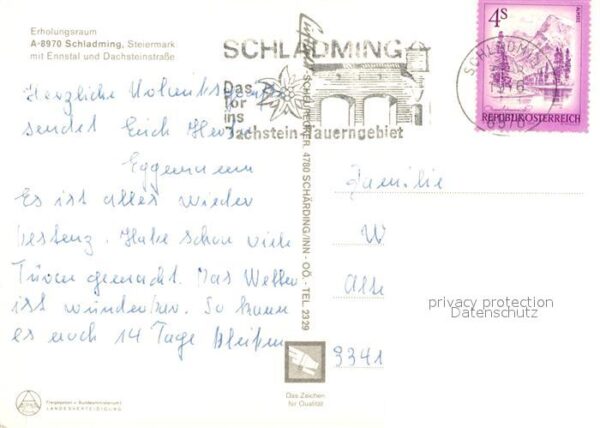 Erholungsraum
A-8970 Schladming, Steiermark
mit Ennstal und Dachsteinstraße
SCHLADMING
Das
Tor
ins
Dachstein-Tauerngebiet
4S
REPUBLIK ÖSTERREICH
SCHLADMING
8970
Herzliche
sendet Euch
Eggemann
Es ist alles wieder
bestenz. Habe schon viele
Turen gemacht. Das Wetter
ist wunderbar. So kann
es noch 14 Tage bleiben
4780 SCHÄRDING/INN - OÖ. - TEL. 2329
Familie
W
Alte
3341
privacy protection
Datenschutz
Das Zeichen
für Qualität
Freigegeben v. Bundesministerium f.
LANDESVERTEIDIGUNG